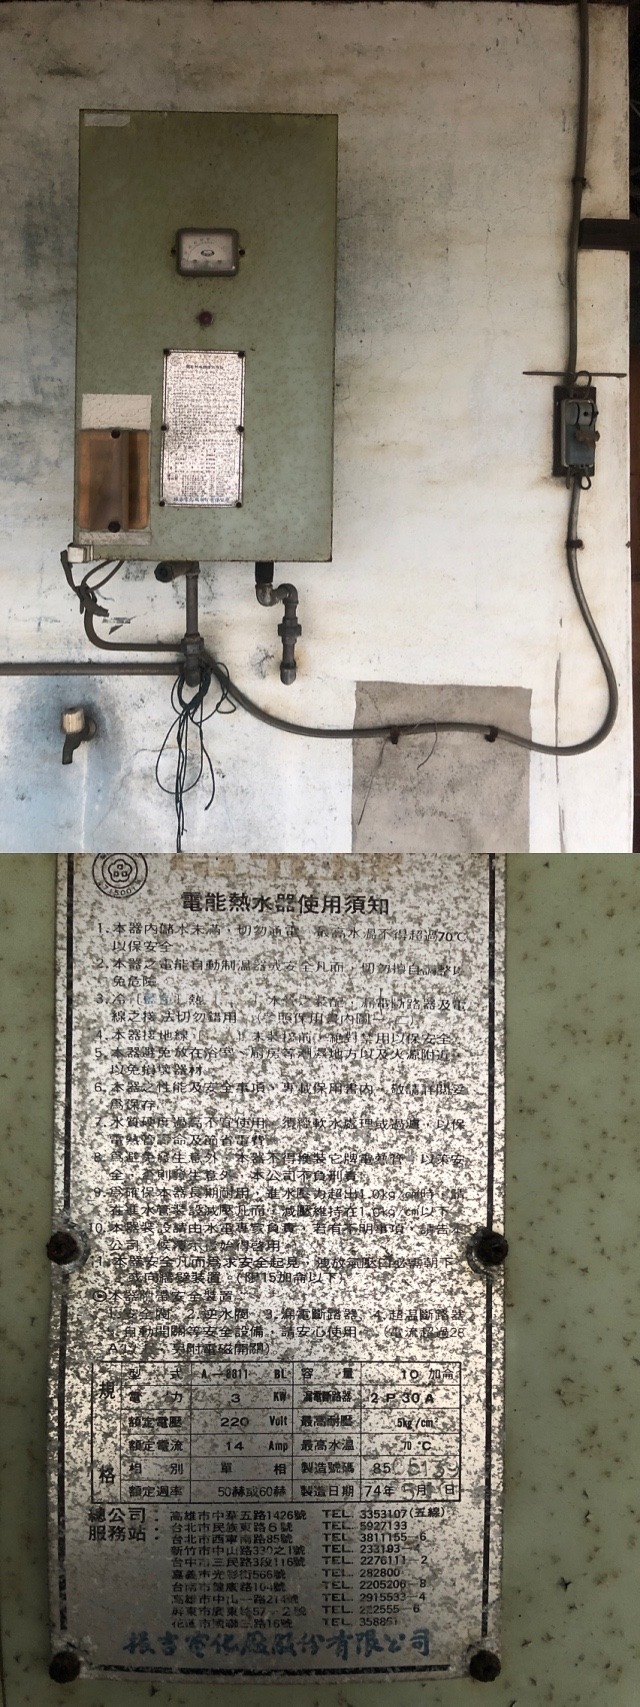 電能熱水器使用須知
1. 本器內儲水未滿，切勿通電，最高水溫不得超過70℃
以保安全
2. 本器之電能自動制溫器或安全凡而，切勿擅自調整以
免危險
線之接法切勿錯用
4. 本器接地線
5. 本器避免放在浴室、廚房等潮濕地方以及火源附近，
以免損壞器材
6. 本器之性能及安全事項，專載保用書內，敬請詳閱妥
為保存
7. 水質硬度過高不宜使用，須經軟水處理或過濾，以保
電熱管壽命及節省電費
8. 為避免發生意外，本器不得換裝它牌電熱管，以策安
全，否則發生意外，本公司不負刑責
9. 為確保本器長期耐用，進水壓力超出1.0kg/cm時，請
在進水管裝設減壓凡而，減壓維持在1.0kg/cm以下
10. 本器裝設請由水電專業負責，若有不明事項，請告本
公司
本器安全凡而為求安全起見，洩放氣壓口必需朝下
或向牆壁裝置。(限15加侖以下)
◎本器附帶安全裝置：
1. 安全閥、2. 逆水閥、3. 漏電斷路器、4. 超溫斷路器
自動開關等安全設備，請安心使用。(電流超過28
另附電磁開關)
規格
型式 A-8811 BL 容量 10 加侖
電力 3 KW 漏電斷路器 2 P 30 A
額定電壓 220 Volt 最高耐壓 5kg/cm²
額定電流 14 Amp 最高水溫 70 ℃
相別 單相 製造號碼 85
額定週率 50赫或60赫 製造日期 74年5月 日
總公司：高雄市中華五路1426號 TEL. 3353107(五線)
服務站：台北市民族東路6號 TEL. 5927133
台北市西寧南路85號 TEL. 3811155-6
新竹市中山路 之1號 TEL. 233193
台中市三民路3段116號 TEL. 2276111-2
嘉義市光彩街566號 TEL. 282800
台南市健康路 號 TEL. 2205206-8
高雄市中山一路214號 TEL. 2915533-4
屏東市廣東路57 2號 TEL. 222555-6
花蓮市 路16號 TEL. 358851
振吉電化廠股份有限公司